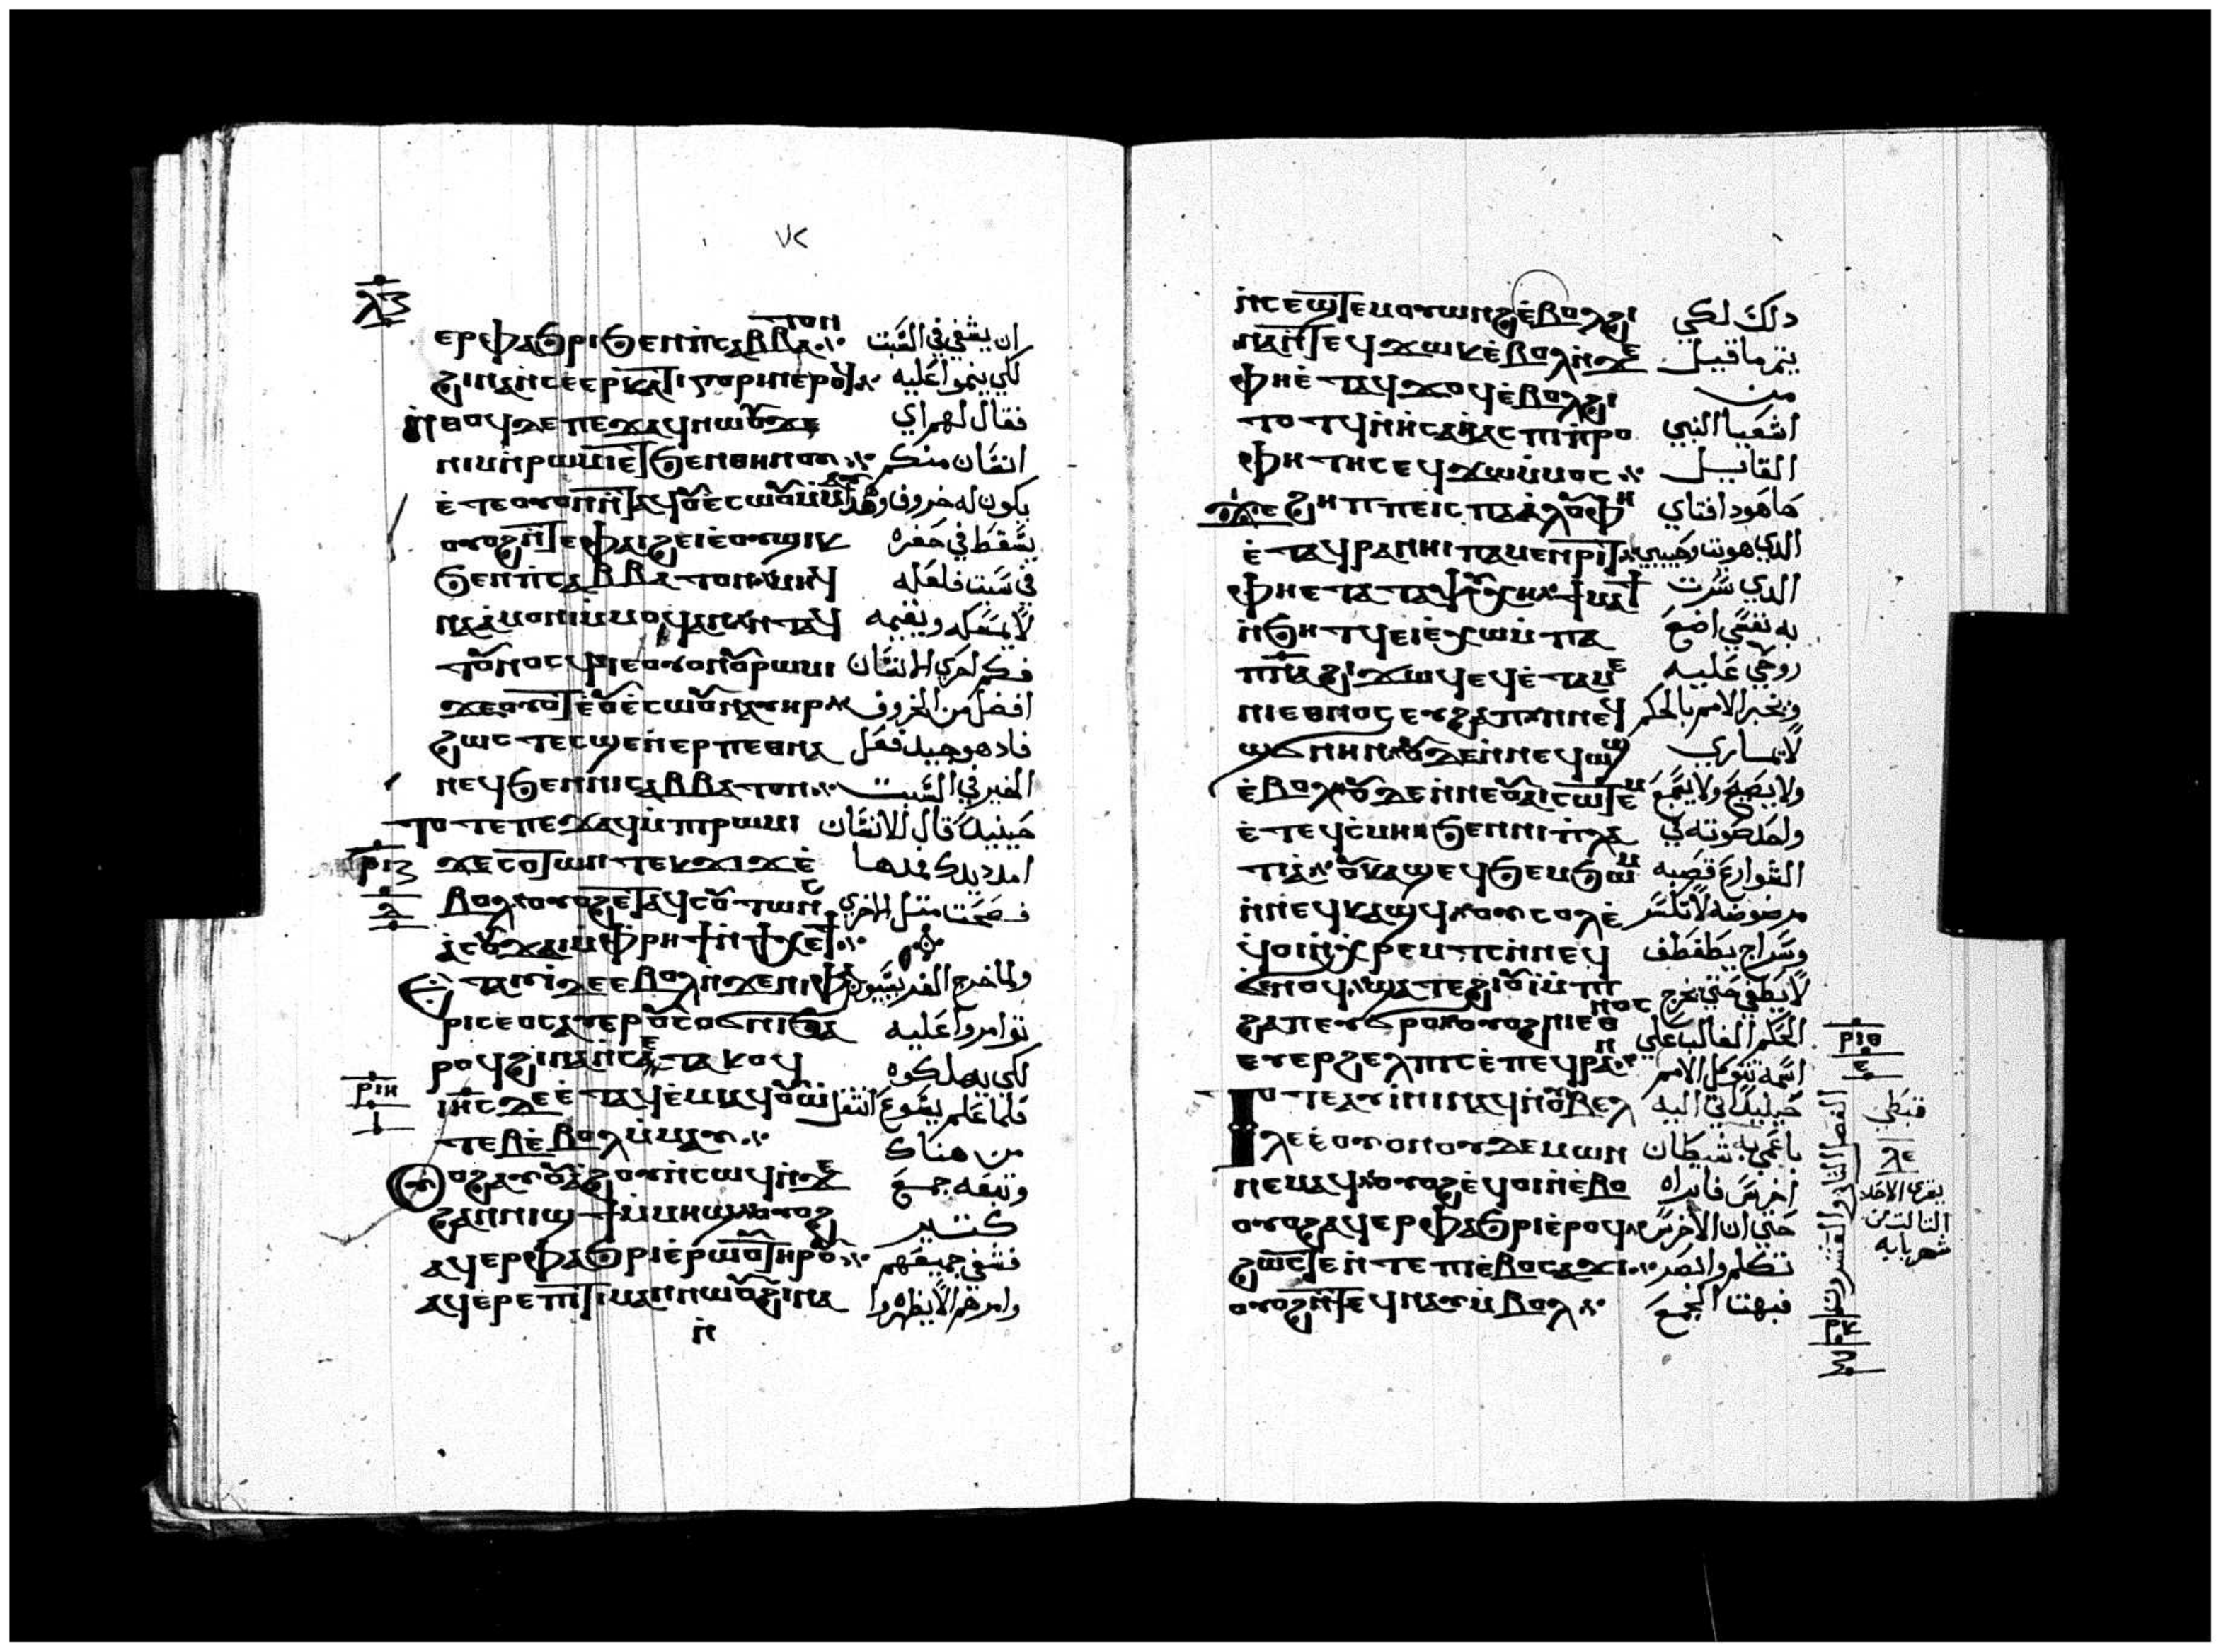 ⲗⲍ
ⲧⲟⲛ
ⲉⲣⲫⲁϧⲣⲓ ϧⲉⲛⲡⲥⲁⲃⲃⲁ ان يشفي في السبت
ϩⲓⲛⲁ ⲛⲥⲉⲉⲣⲕⲁⲧⲏⲅⲟⲣⲓⲛ ⲉⲣⲟϥ لكي ينموا عليه
ⲛⲑⲟϥ ⲇⲉ ⲡⲉϫⲁϥ ⲛⲱⲟⲩ ϫⲉ فقال لهم اي
ⲛⲓⲙ ⲛⲣⲱⲙⲓ ⲉⲧϧⲉⲛⲑⲏⲛⲟⲩ انسان منكم
ⲉⲧⲉⲟⲩⲟⲛⲧⲁϥ ⲟⲩⲉⲥⲱⲟⲩ ⲙⲙⲁⲩ يكون له خروف وهذا
ⲟⲩⲟϩ ⲛⲧⲉⲫⲁⲓ ϩⲉⲓ ⲉⲟⲩϣⲓⲕ يسقط في حفره
ϧⲉⲛⲡⲥⲁⲃⲃⲁⲧⲟⲛ ⲙⲏ في سبت فلعله
ⲛⲁⲁⲙⲟⲛⲓ ⲙⲙⲟϥ ⲁⲛ ⲛⲧⲁϥ لا يمسكه ويقيمه
ⲧⲟⲩⲛⲟⲥϥ ⲓⲉ ⲟⲩⲟⲛ ⲟⲩⲣⲱⲙⲓ فكم لحري الانسان
ϫⲉ ⲟⲩⲟⲧ ⲉⲟⲩⲉⲥⲱⲟⲩ ⲛⲁⲩⲏⲣ افضل من الخروف
ϩⲱⲥⲧⲉ ⲥϣⲉ ⲛⲉⲣⲡⲉⲑⲛⲁ فاد هو جيد فعل
ⲛⲉϥ ϧⲉⲛⲛⲓⲥⲁⲃⲃⲁⲧⲟⲛ الخير في السبت
ⲧⲟⲧⲉ ⲡⲉϫⲁϥ ⲙⲡⲓⲣⲱⲙⲓ حينيد قال للانسان
ⲣⲓⲍ ϫⲉ ⲥⲟⲩⲧⲱⲛ ⲧⲉⲕϫⲓϫ ⲉ امدد يدك فمدها
ⲇ ⲃⲟⲗ ⲟⲩⲟϩ ⲉⲧⲁϥⲥⲟⲩⲧⲱⲛⲥ فصحت متل الاخري
ⲁⲥⲟⲩϫⲁⲓ ⲙⲫⲣⲏϯ ⲛϯⲭⲉϯ
ⲉⲧⲁⲩⲓ ⲇⲉ ⲉⲃⲟⲗ ⲛϫⲉⲛⲓⲫⲁ ولما خرج الفريسيون
ⲣⲓⲥⲉⲟⲥ ⲁⲩⲉⲣ ⲟⲩⲥⲟϭⲛⲓ ϧⲁ توامروا عليه
ⲣⲟϥ ϩⲓⲛⲁ ⲛⲥⲉⲧⲁⲕⲟϥ لكي يهلكوه
ⲣⲓⲏ ⲓⲏⲥ ⲇⲉ ⲉⲧⲁϥⲉⲙⲓ ⲁϥⲟⲩⲱ فلما علم يسوع انتقل
ⲓ ⲧⲉⲃ ⲉⲃⲟⲗ ⲙⲙⲁⲩ من هناك
ⲟⲩⲟϩ ⲁⲩⲟⲩⲁϩⲟⲩ ⲛⲥⲱϥ ⲛϫⲉ وتبعه جمع
ϩⲁⲛⲛⲓϣϯ ⲙⲙⲏϣ ⲟⲩⲟϩ كتير
ⲁϥⲉⲣⲫⲁϧⲣⲓ ⲉⲣⲱⲟⲩ ⲧⲏⲣⲟⲩ فشفي جميعهم
ⲁϥⲉⲣⲉⲡⲓⲧⲓⲙⲁⲛ ⲛⲱⲟⲩ ϩⲓⲛⲁ وامرهم الا يظهروا
ⲛ
ⲛⲥⲉϣⲧⲉⲙⲟⲩⲱⲛϩ ⲉⲃⲟⲗ ϩⲓ دلك لكي
ⲛⲁ ⲛⲧⲉϥϫⲱⲕ ⲉⲃⲟⲗ ⲛϫⲉ يتم ما قيل
ⲫⲏ ⲉⲧⲁϥϫⲟϥ ⲉⲃⲟⲗ ϩⲓ من
ⲧⲟⲧϥ ⲛⲏⲥⲁⲏⲁⲥ ⲡⲓⲡⲣⲟ اشعيا النبي
ⲫⲏⲧⲏⲥ ⲉϥϫⲱ ⲙⲙⲟⲥ القايل
ϫⲉ ϩⲏⲡⲡⲉ ⲓⲥ ⲡⲁⲁⲗⲟⲩ ⲫⲏ ها هودا فتاي
ⲉⲧⲁϥⲣⲁⲛⲏⲓ ⲡⲁⲙⲉⲛⲣⲓⲧ الدي هويت وحبيبي
ⲫⲏ ⲉⲧⲁ ⲧⲁⲯⲩⲭⲏ ϯⲙⲁϯ الدي سرت
ⲛϧⲏⲧϥ ⲉⲓⲉⲭⲱ ⲙⲡⲁ به نفسي اضع
ⲡⲛⲁ ϩⲓϫⲱϥ ⲉϥⲉⲧⲁⲙⲉ روحي عليه
ⲛⲓⲉⲑⲛⲟⲥ ⲉⲩϩⲁⲡ ⲛⲛⲉϥ ويخبر الامم بالحكم
ϣϭⲛⲏⲛ ⲟⲩⲇⲉ ⲛⲛⲉϥⲱϣ لا يماري
ⲉⲃⲟⲗ ⲟⲩⲇⲉ ⲛⲛⲉⲟⲩⲁⲓ ⲥⲱⲧⲉⲙ ولا يصيح ولا يسمع
ⲉⲧⲉϥⲥⲙⲏ ϧⲉⲛⲛⲓⲡⲗⲁ واحد صوته في
ⲧⲓⲁ ⲟⲩⲕⲁϣ ⲉϥϧⲉⲙϧⲱⲙ الشوارع قصبه
ⲛⲛⲉϥⲕⲁϣϥ ⲟⲩⲥⲟⲗ ⲉ مرضوضه لا تكسر
ϥⲟⲓ ⲛⲭⲣⲉⲙⲧⲥ ⲛⲛⲉϥ وسراج يطفطف
ϭⲉⲛⲟϥ ϣⲁⲧⲉϥϩⲓⲟⲩⲓ ⲙⲡⲓ لا يطفي حتي يخرج
ⲛⲟⲥ
ϩⲁⲡ ⲉⲩϭⲣⲟ ⲟⲩⲟϩ ⲛⲓⲉⲑ الحكم الغالب علي
ⲉⲩⲉⲣϩⲉⲗⲡⲓⲥ ⲉⲡⲉϥⲣⲁⲛ اسمه تتوكل الامم
ⲣⲓⲑ
ⲉ
ⲧⲟⲧⲉ ⲁⲩⲓⲛⲓ ⲛⲁϥ ⲛⲟⲩⲃⲉⲗ حينيد اتي اليه
ⲗⲉ ⲉⲟⲩⲟⲛ ⲟⲩⲇⲉⲙⲱⲛ باعمي به شيطان
ⲛⲉⲙⲁϥ ⲟⲩⲟϩ ⲉϥⲟⲓ ⲛⲉⲃⲟ اخرس فابراه
ⲟⲩⲟϩ ⲁϥⲉⲣⲫⲁϧⲣⲓ ⲉⲣⲟϥ حتي ان الاخرس
ϩⲱⲥⲧⲉ ⲛⲧⲉⲡⲓⲉⲃⲟ ⲥⲁϫⲓ تكلم وابصر
ⲟⲩⲟϩ ⲛⲧⲉϥⲛⲁⲩ ⲙⲃⲟⲗ فبهت الجمع
الفصل التاني والعشرون
ⲣⲕ
ⲅ
قبطي
ⲗⲉ
يقرا الاحد
التالت من
شهر بابه